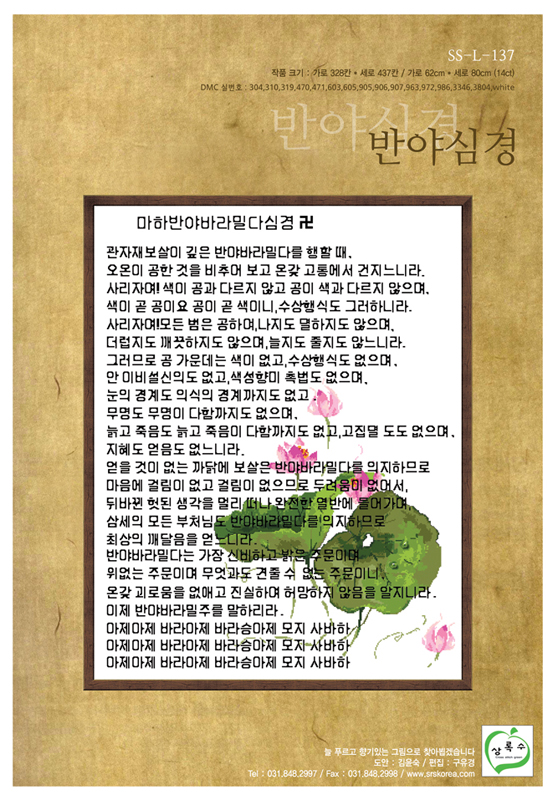 SS-L-137
작품 크기 : 가로 328칸 * 세로 437칸 / 가로 62cm * 세로 80cm (14ct)
DMC 실번호 : 304,310,319,470,471,603,605,905,906,907,963,972,986,3346,3804,white
반야심경
반야심경
마하반야바라밀다심경 卍
관자재보살이 깊은 반야바라밀다를 행할 때,
오온이 공한 것을 비추어 보고 온갖 고통에서 건지느니라.
사리자여! 색이 공과 다르지 않고 공이 색과 다르지 않으며,
색이 곧 공이요 공이 곧 색이니,수상행식도 그러하니라.
사리자여!모든 법은 공하여,나지도 멸하지도 않으며,
더럽지도 깨끗하지도 않으며,늘지도 줄지도 않느니라.
그러므로 공 가운데는 색이 없고,수상행식도 없으며,
안 이비설신의도 없고,색성향미 촉법도 없으며,
눈의 경계도 의식의 경계까지도 없고 ,
무명도 무명이 다함까지도 없으며,
늙고 죽음도 늙고 죽음이 다함까지도 없고,고집멸 도도 없으며 ,
지혜도 얻음도 없느니라.
얻을 것이 없는 까닭에 보살은 반야바라밀다를 의지하므로
마음에 걸림이 없고 걸림이 없으므로 두려움이 없어서,
뒤바뀐 헛된 생각을 멀리 떠나 완전한 열반에 들어가며,
삼세의 모든 부처님도 반야바라밀다를 의지하므로
최상의 깨달음을 얻느니라.
반야바라밀다는 가장 신비하고 밝은 주문이며
위없는 주문이며 무엇과도 견줄 수 없는 주문이니,
온갖 괴로움을 없애고 진실하여 허망하지 않음을 알지니라.
이제 반야바라밀주를 말하리라.
아제아제 바라아제 바라승아제 모지 사바하
아제아제 바라아제 바라승아제 모지 사바하
아제아제 바라아제 바라승아제 모지 사바하
늘 푸르고 향기있는 그림으로 찾아뵙겠습니다
도안 : 김윤숙 / 편집 : 구유경
Tel : 031.848.2997 / Fax : 031.848.2998 / www.srskorea.com
상록수